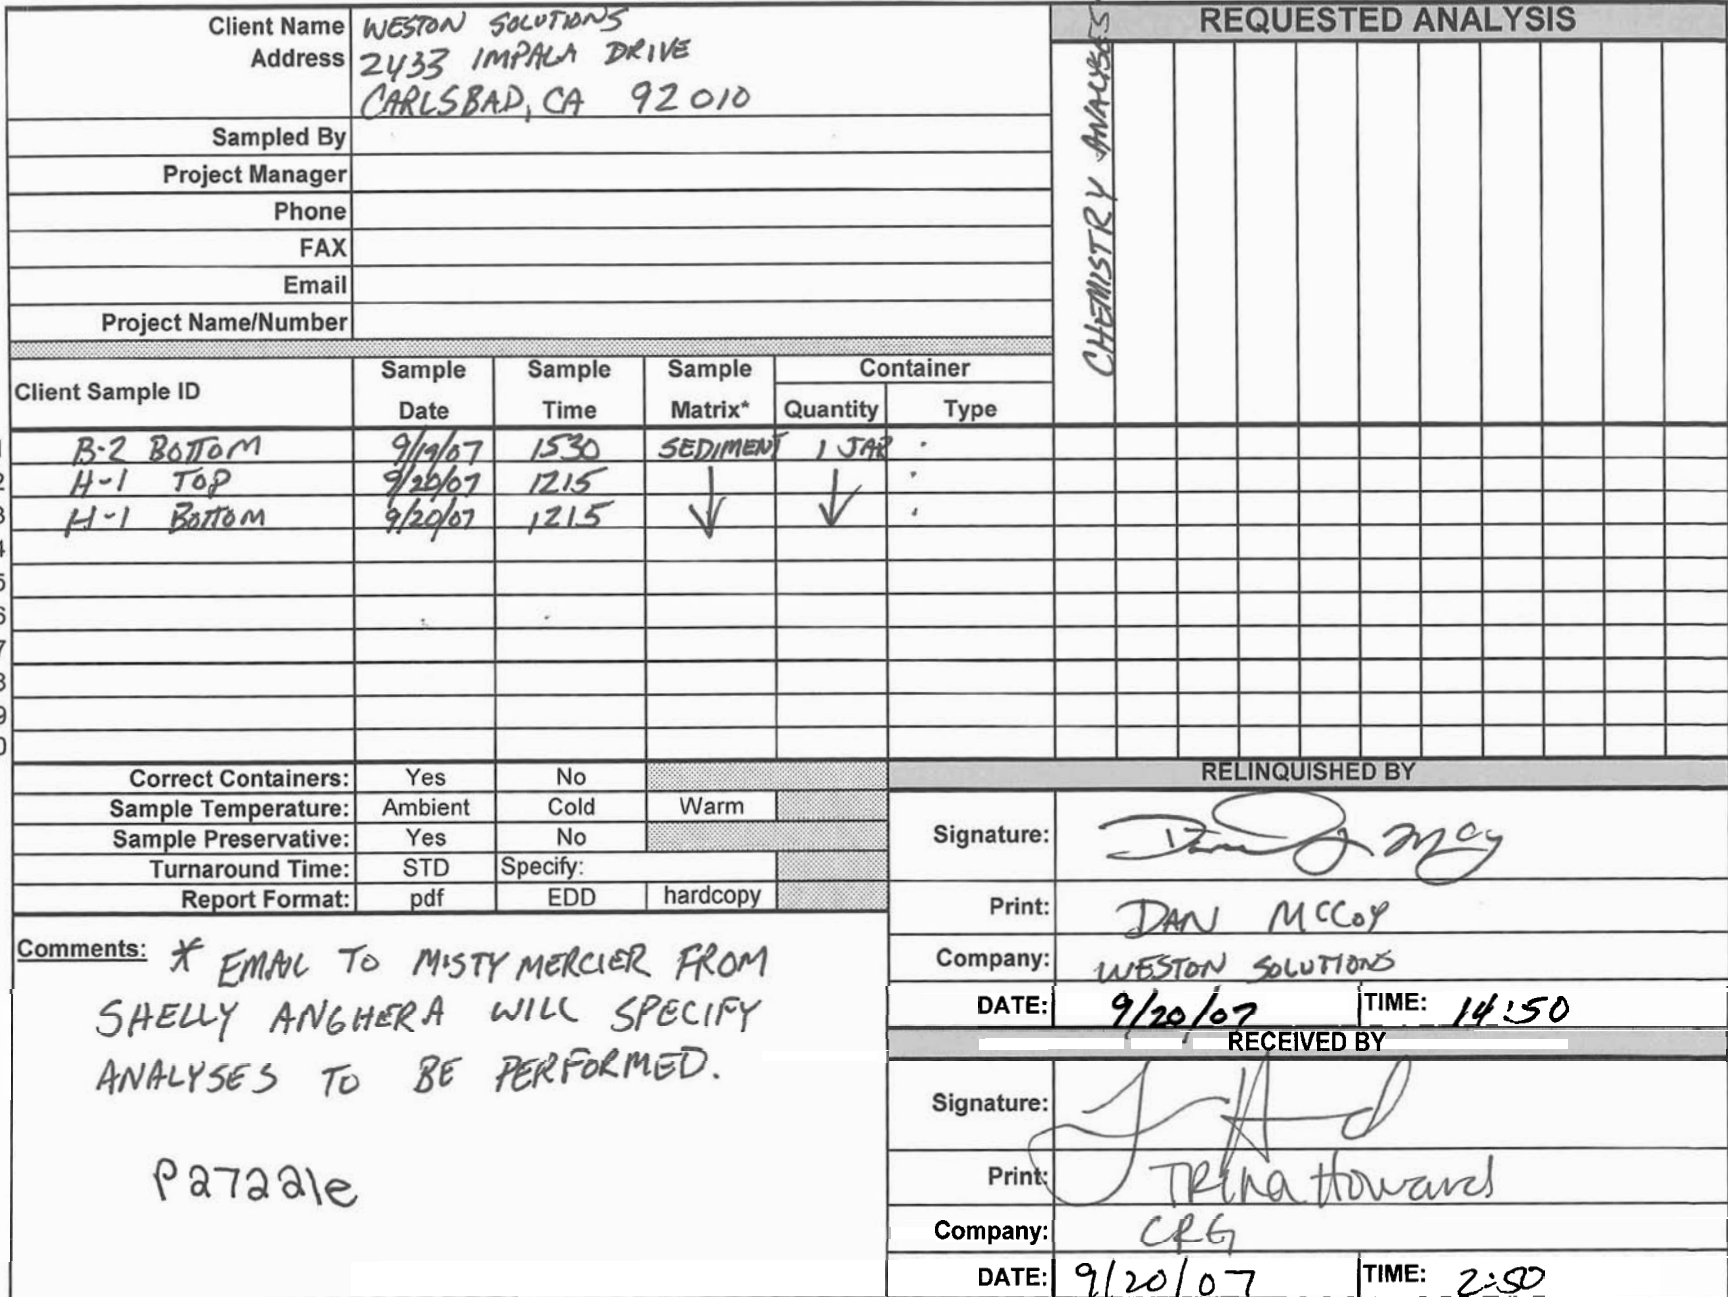 Client Name WESTON SOLUTIONS
Address 2433 IMPALA DRIVE
CARLSBAD, CA 92010
Sampled By
Project Manager
Phone
FAX
Email
Project Name/Number
REQUESTED ANALYSIS
CHEMISTRY ANALYSES
Client Sample ID Sample Date Sample Time Sample Matrix* Container Quantity Type
B-2 BOTTOM 9/19/07 1530 SEDIMENT 1 JAR
2 H-1 TOP 9/20/07 1215
3 H-1 BOTTOM 9/20/07 1215
4
5
6
7
8
9
0
Correct Containers: Yes No
Sample Temperature: Ambient Cold Warm
Sample Preservative: Yes No
Turnaround Time: STD Specify:
Report Format: pdf EDD hardcopy
Comments: * EMAIL TO MISTY MERCIER FROM
SHELLY ANGHERA WILL SPECIFY
ANALYSES TO BE PERFORMED.
P27221e
RELINQUISHED BY
Signature: Dan McCoy
Print: DAN MCCOY
Company: WESTON SOLUTIONS
DATE: 9/20/07 TIME: 14:50
RECEIVED BY
Signature:
Print: TRina Howard
Company: CRG
DATE: 9/20/07 TIME: 2:50